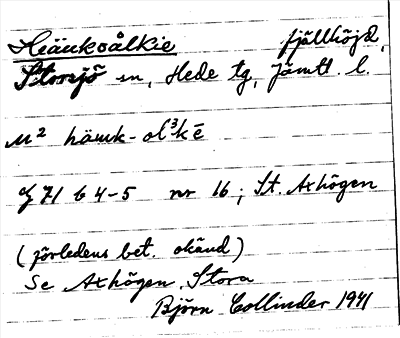 Hiäukoålkie fjällhöjd,
Storsjö sn, Hede tg, Jämtl. l.
M² häuk-ol³kē
G 71 b 4-5 nr 16; St. Axhögen
(förledens bet. okänd)
Se Axhögen, Stora
Björn Collinder 1941